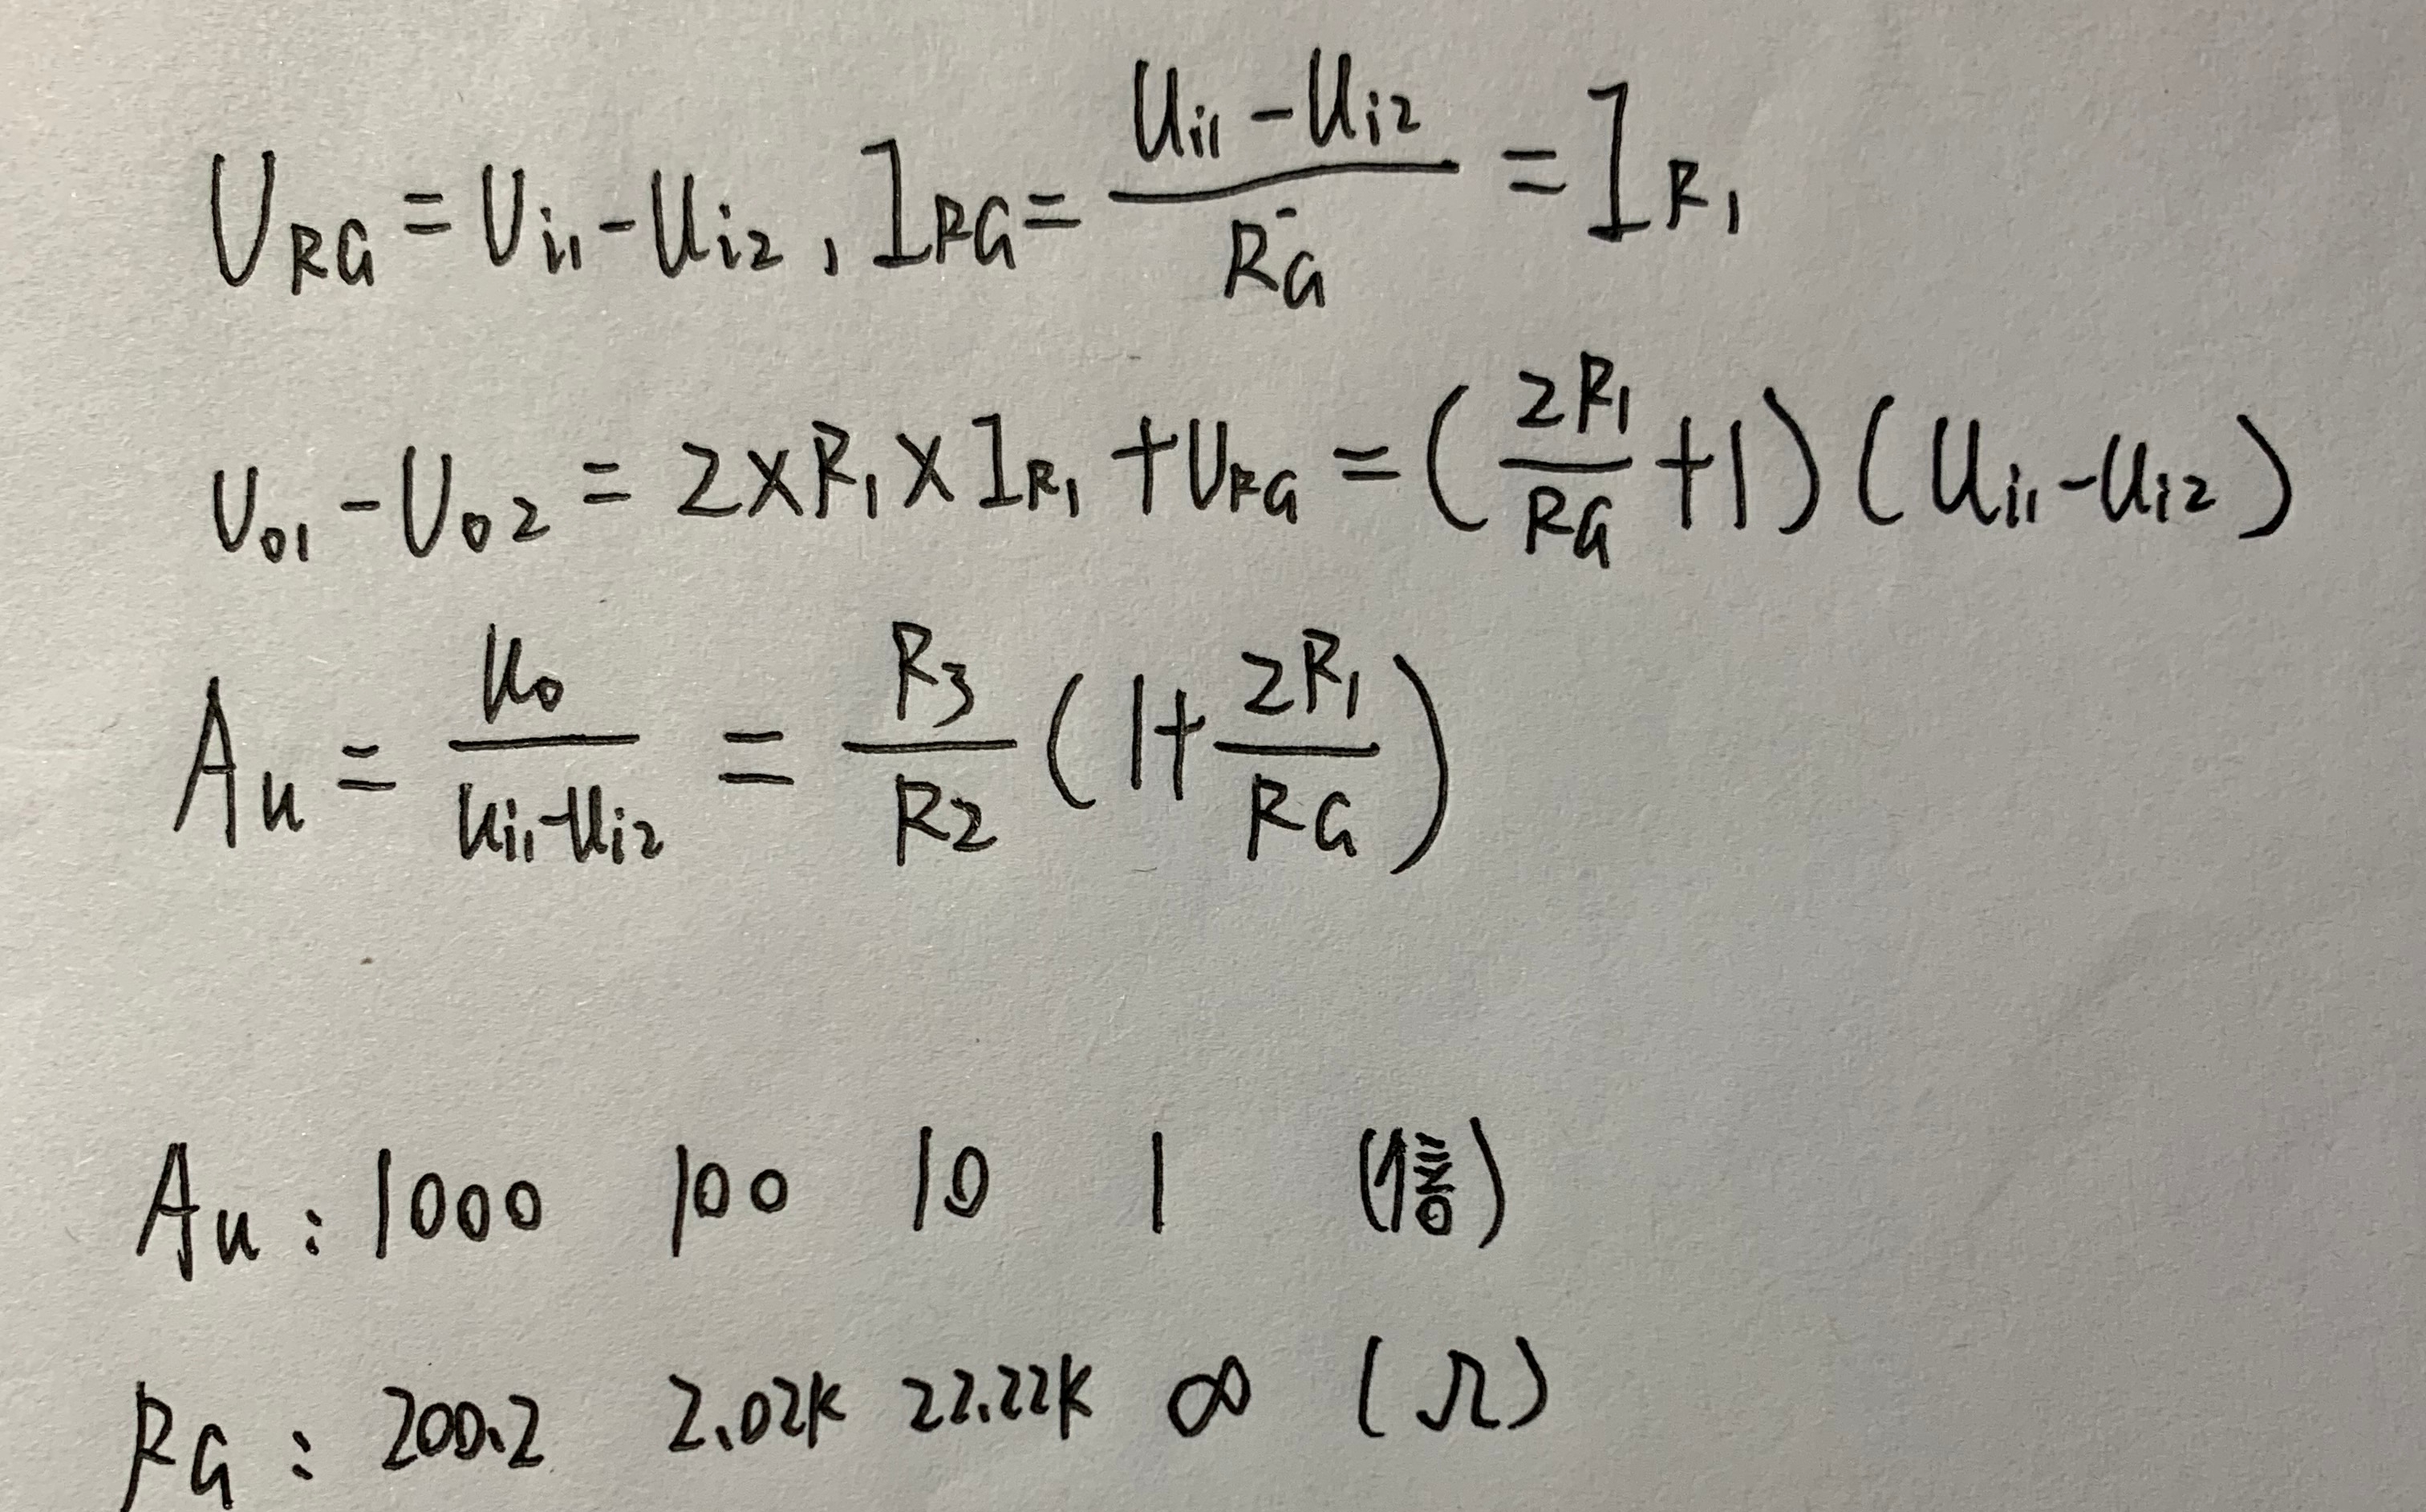 U_RG = U_i1 - U_i2 , I_RG = (U_i1 - U_i2) / R_G = I_R1
U_o1 - U_o2 = 2×R_1×I_R1 + U_RG = (2R_1/R_G + 1)(U_i1 - U_i2)
A_u = u_o / (u_i1 - u_i2) = R_3/R_2 (1 + 2R_1/R_G)
A_u : 1000 100 10 1 (倍)
R_G : 200.2 2.02K 22.22K ∞ (Ω)